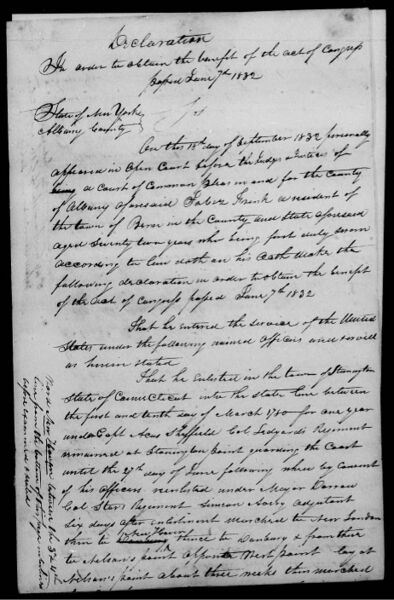 Declaration
In order to obtain the benefit of the act of Congress
passed June 7th 1832
State of New York
Albany County
On this 18th day of September 1832 personally
appeared in Open Court before the Judges & Justices of
a Court of Common Pleas in and for the County
of Albany aforesaid Jabez Frink a resident of
the town of Bern in the County and State aforesaid
aged Seventy two years who being first duly sworn
according to law doth on his Oath make the
following declaration in order to obtain the benefit
of the act of Congress passed June 7th 1832
That he entered the service of the United
States under the following named Officers and served
as herein stated
That he enlisted in the town of Stonington
State of Connecticut into the State line between
the first and tenth day of March 1780 for one year
under Capt Acus Sheffield Col Ledyards Regiment
remained at Stonington point guarding the Coast
until the 27th day of June following when by Consent
of his Officers reenlisted under Major
Col Starrs Regiment Simeon adjutant
Six days after enlistment marched to New London
then to New Haven thence to Danbury & from there
to Nelson's point opposite West point lay at
Nelson's point about three weeks then marched
Word New Haven between the 3d & 4th
line from the bottom of this page interlined
before examined & ruled